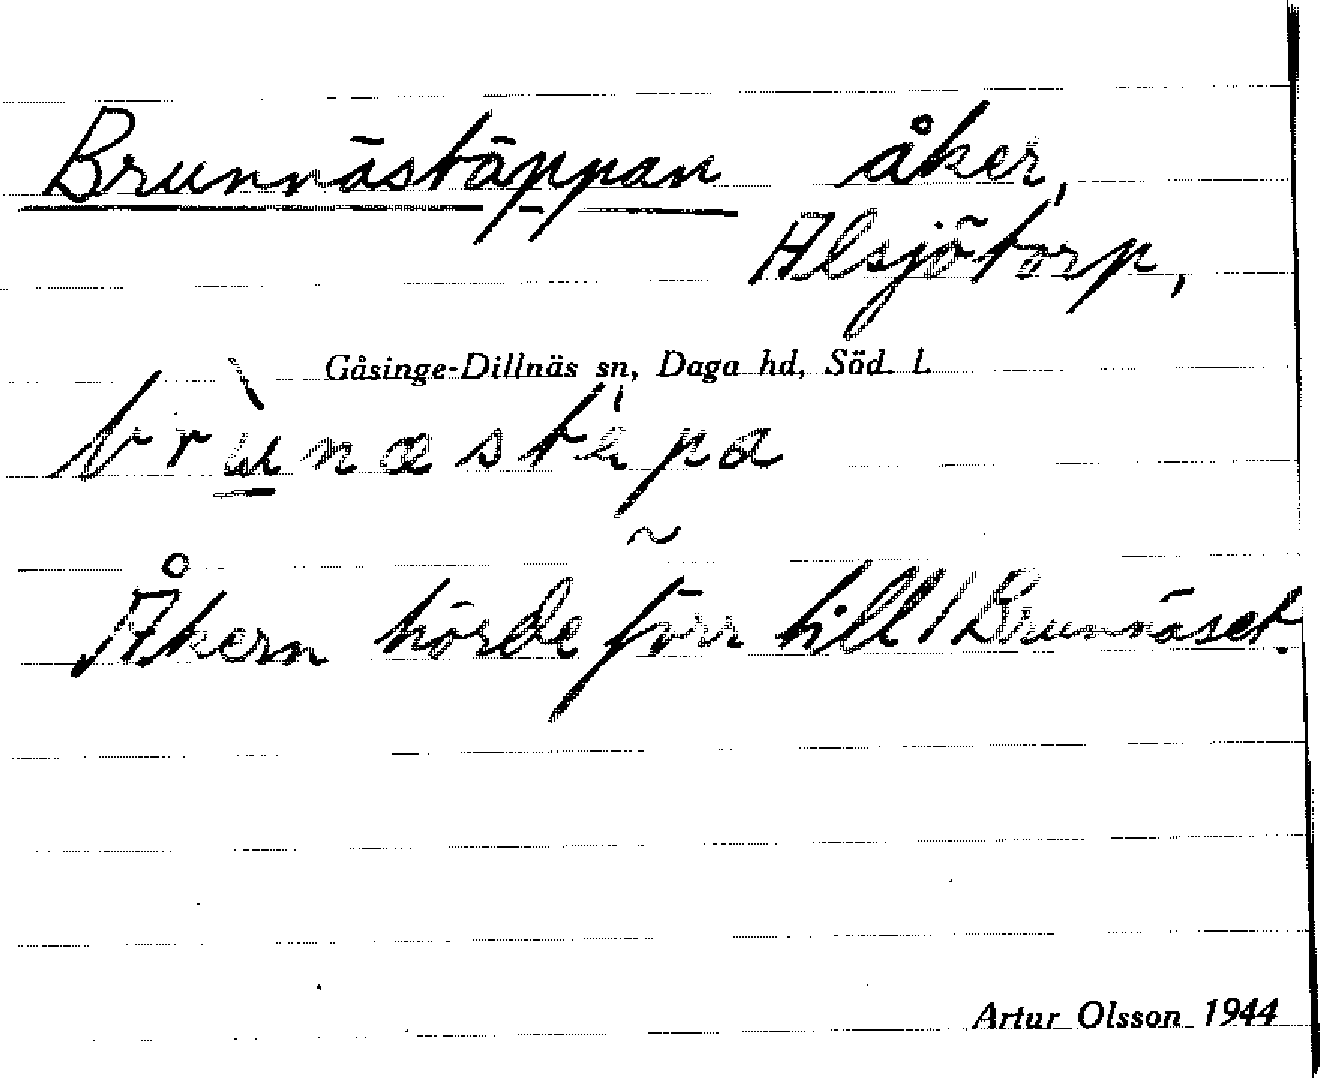 Brunnästäppan åker,
Alsjötorp,
Gåsinge-Dillnäs sn, Daga hd, Söd. L
Åkern hörde förr till Brunnäset.
Artur Olsson 1944